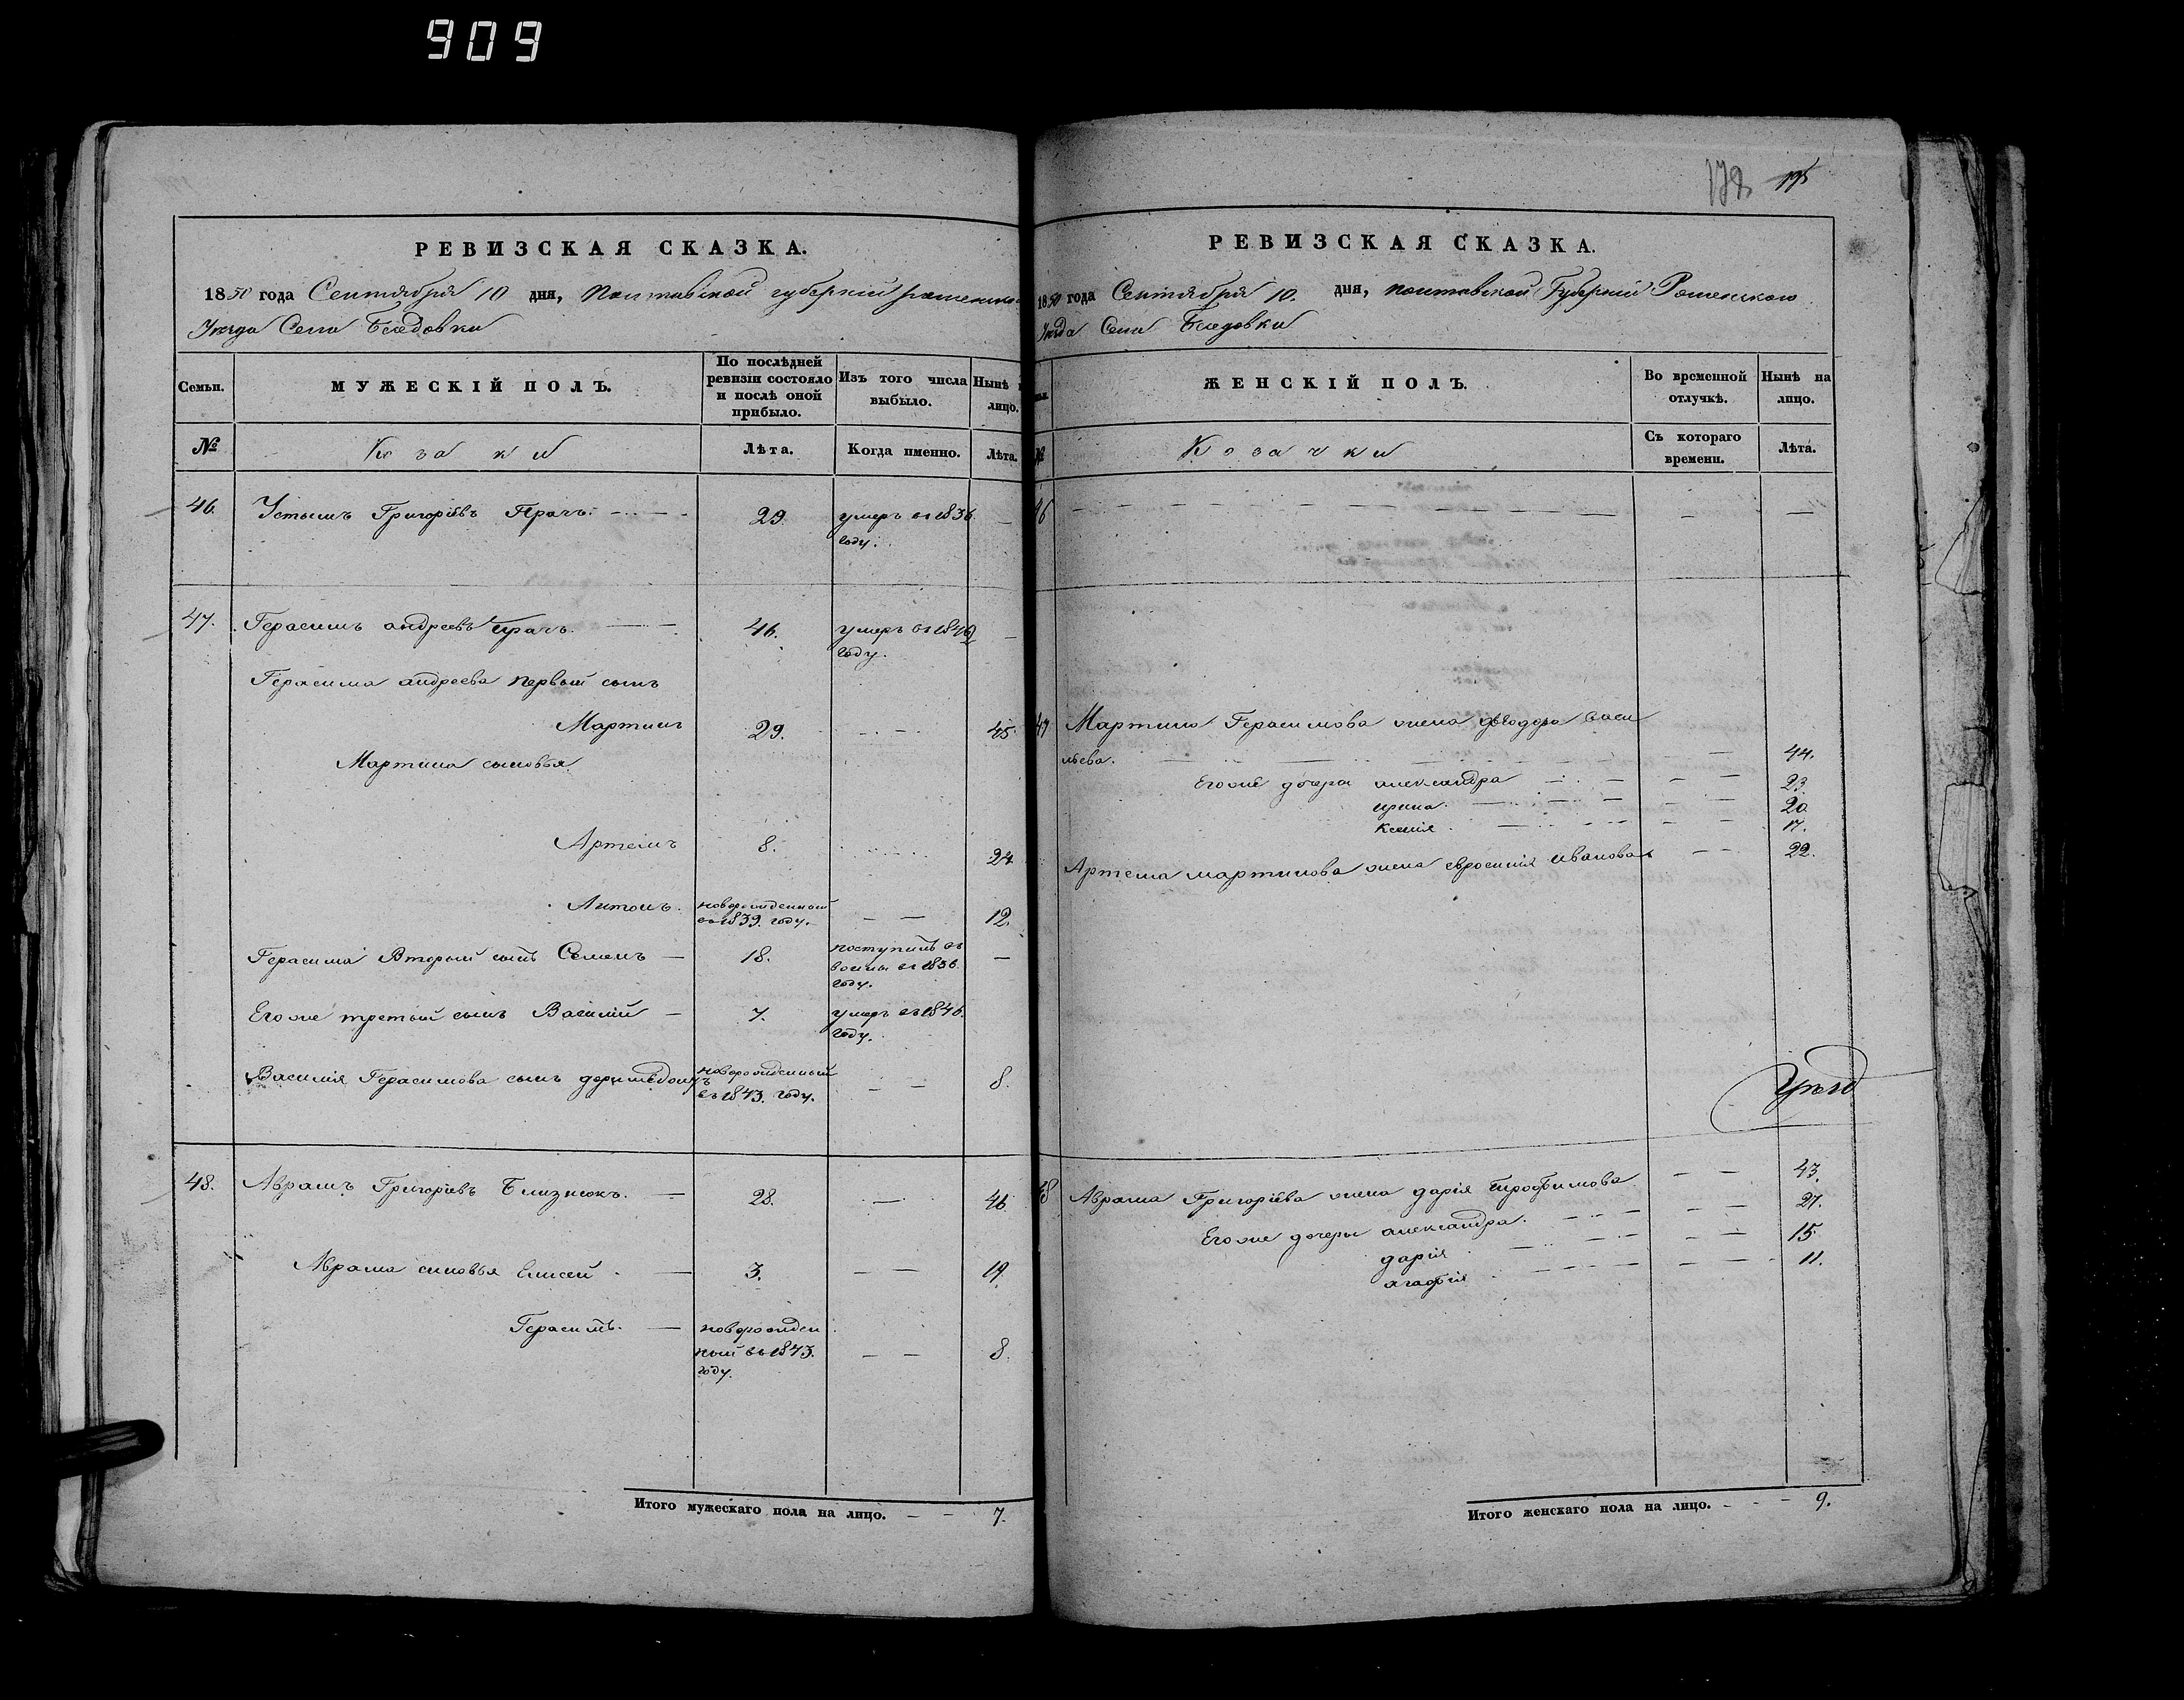 909
178 195
РЕВИЗСКАЯ СКАЗКА.
1850 года Сентября 10 дня, Полтавской губернии роменского
Уезда Села Беседовки
Семьи.
МУЖЕСКІЙ ПОЛЪ.
По послѣдней ревизіи состояло и послѣ оной прибыло.
Изъ того числа выбыло.
Нынѣ на лицо.
№
Козаки
Лѣта.
Когда именно.
Лѣта.
46. Устимъ Григорієвъ Прачъ. 29. умеръ въ 1836
году.
47. Герасимъ андреевъ Прачъ. 46. умеръ въ 1840
году.
Герасима андреева первый сынъ
Мартинъ 29. 45.
Мартина сыновья
Артемъ 8. 24.
Антонъ. новорожденный
въ 1839. году. 12.
Герасима Вторый сынъ Семенъ 18. поступилъ въ
воины въ 1836.
году.
Егоже третый сынъ Василій 7. умеръ въ 1846.
году.
Василія Герасимова сынъ доримедонтъ новорожденный
въ 1843. году. 8.
48. Аврамъ Григорієвъ Близнюкъ. 28. 46.
Аврама сыновья Елисей 3. 19.
Герасимъ. новорожден
ный въ 1843.
году. 8.
Итого мужескаго пола на лицо. 7.
РЕВИЗСКАЯ СКАЗКА.
1850 года Сентября 10. дня, полтавской Губерніи Роменского
Уезда Села Беседовки
ЖЕНСКІЙ ПОЛЪ.
Во временной отлучкѣ.
Нынѣ на лицо.
№
Козачки
Съ котораго времени.
Лѣта.
46
47 Мартина Герасимова жена феодора Васи
льева. 44.
Егоже дочери александра 23.
ирина. 20
Ксенія. 17.
Артема мартинова жена евросинія иванова 22.
48 Аврама Григорієва жена дарія трофимова 43.
Егоже дочеры александра. 27.
дарія 15.
агафія 11.
Итого женскаго пола на лицо. 9.